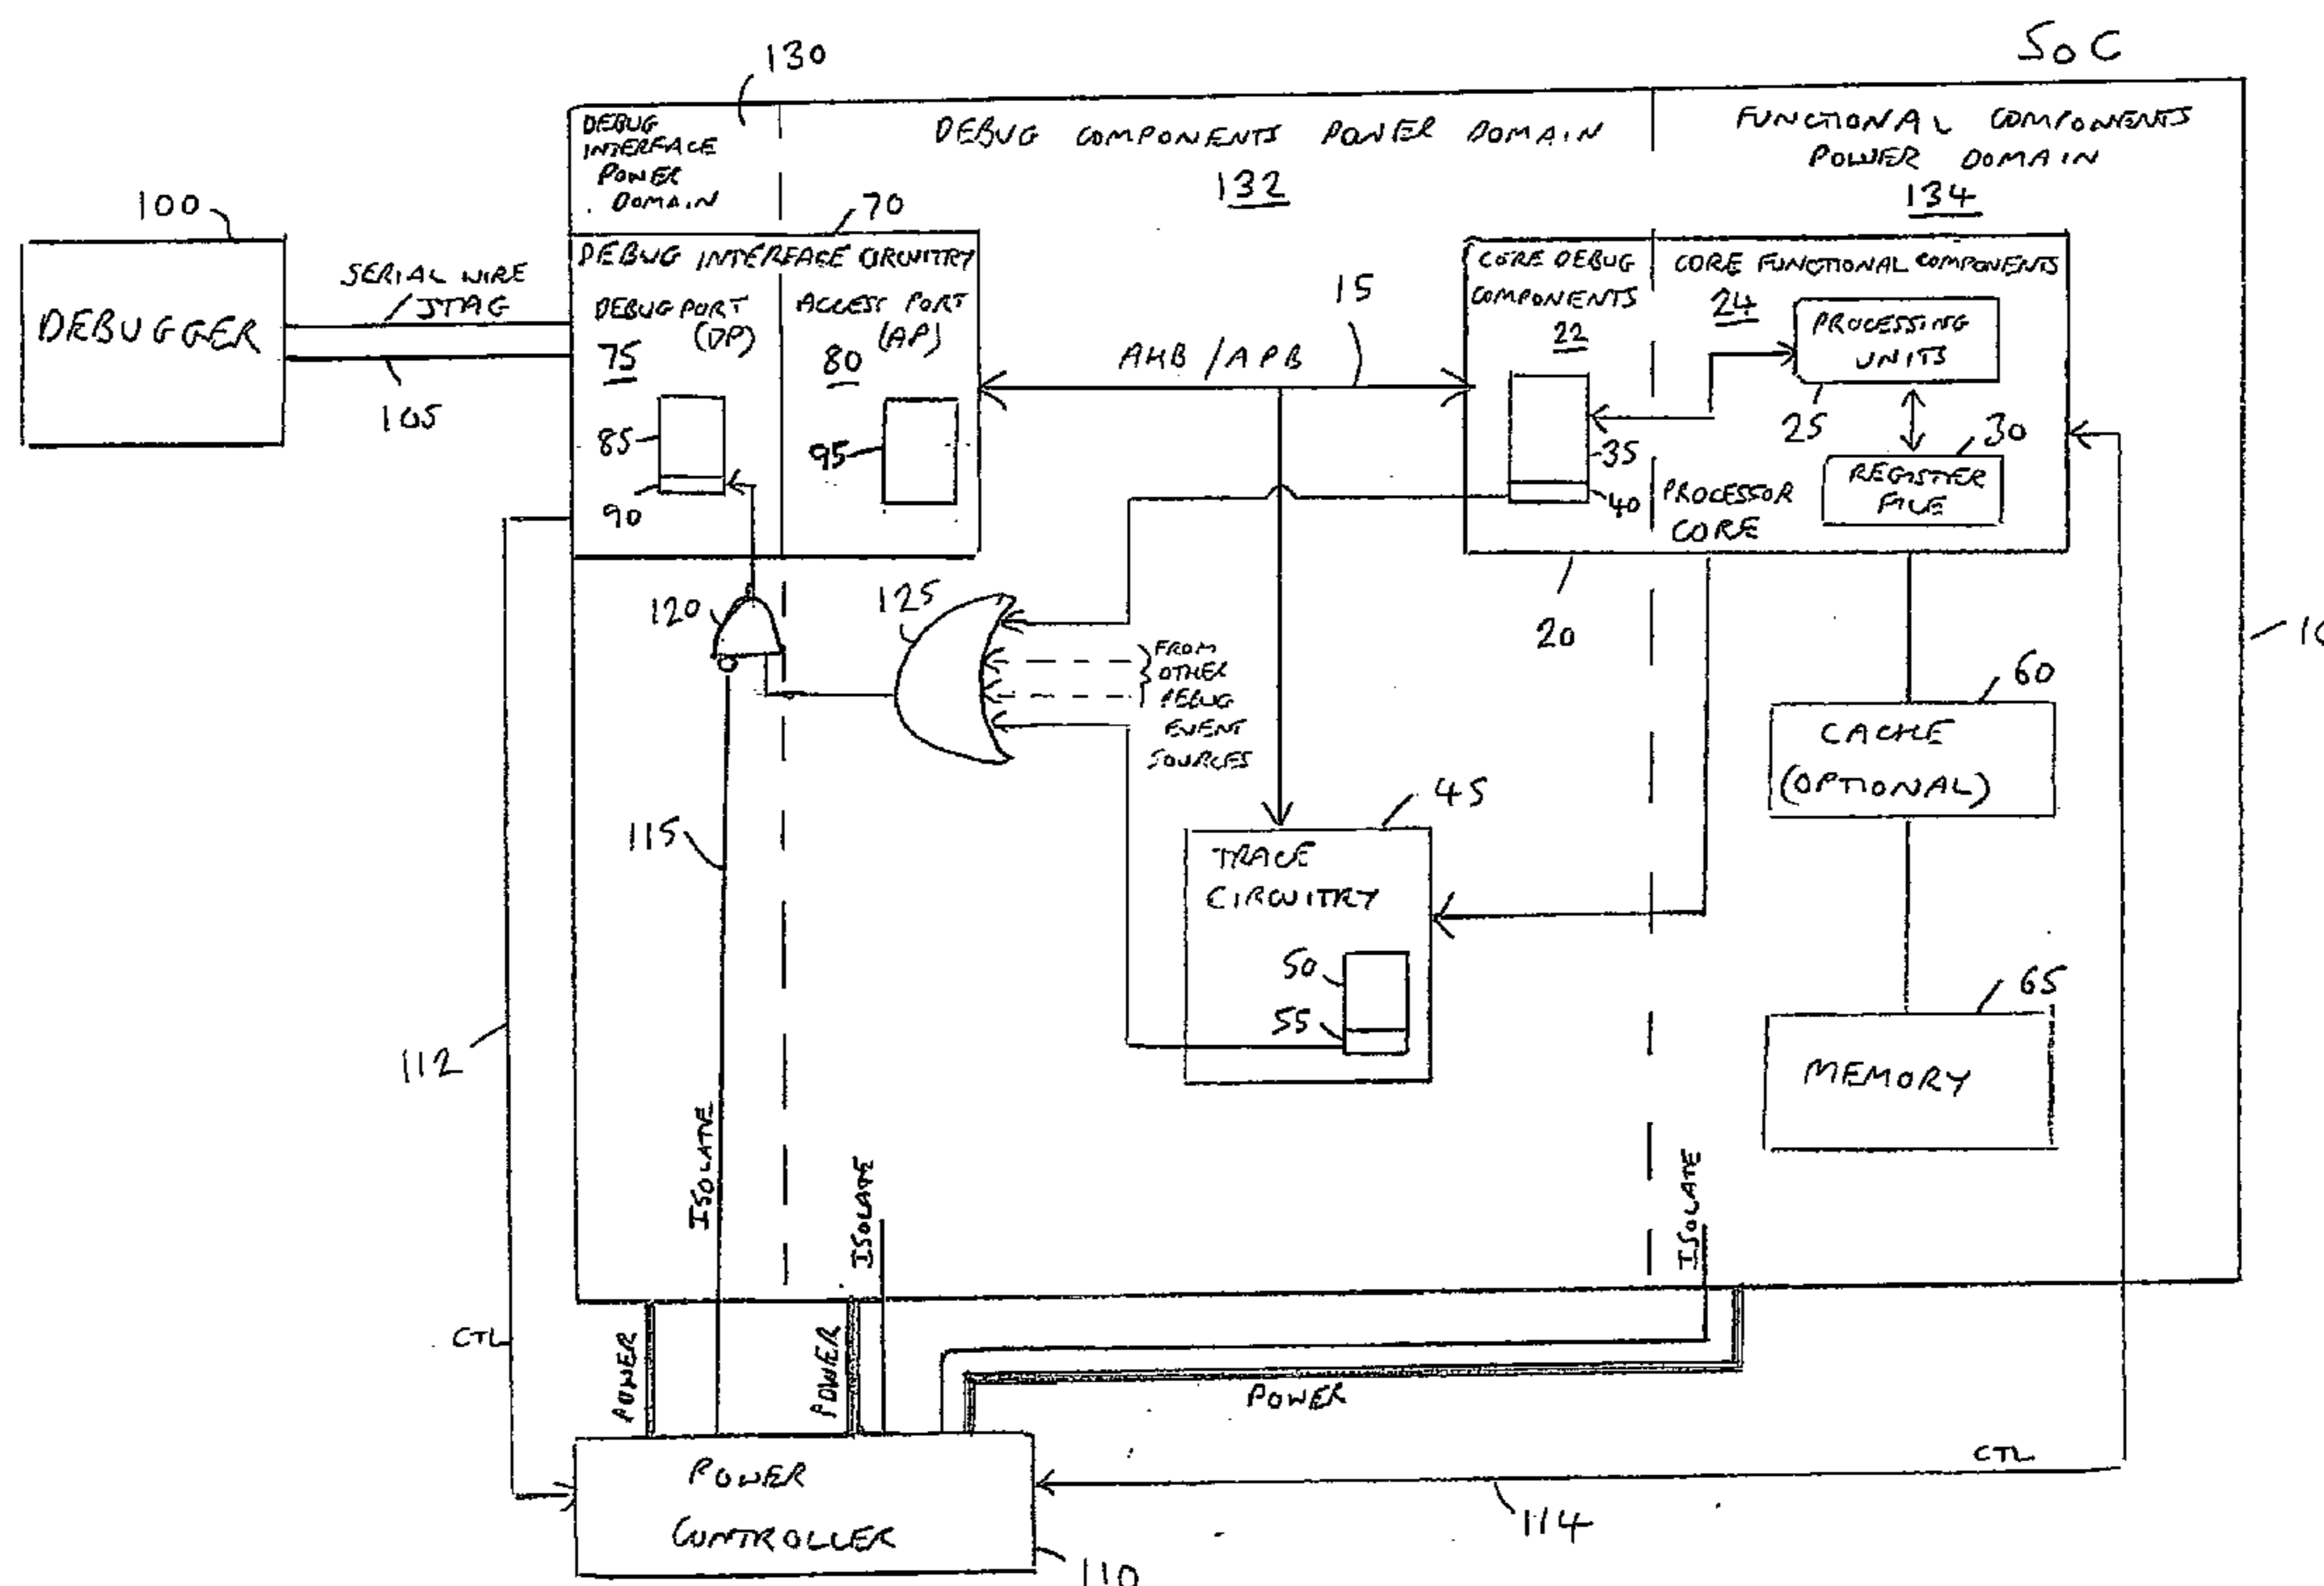 SoC
130
DEBUG
INTERFACE
POWER
DOMAIN
DEBUG COMPONENTS POWER DOMAIN
132
FUNCTIONAL COMPONENTS
POWER DOMAIN
134
100
DEBUGGER
SERIAL WIRE
JTAG
105
70
DEBUG INTERFACE CIRCUITRY
DEBUG PORT
(DP)
75
85
90
ACCESS PORT
(AP)
80
95
AHB / APB
15
CORE DEBUG
COMPONENTS
22
35
40
CORE FUNCTIONAL COMPONENTS
24
PROCESSING
UNITS
25
30
REGISTER
FILE
PROCESSOR
CORE
20
120
125
FROM
OTHER
DEBUG
EVENT
SOURCES
60
CACHE
(OPTIONAL)
115
45
TRACE
CIRCUITRY
50
55
65
MEMORY
112
ISOLATE
ISOLATE
ISOLATE
CTL
POWER
POWER
POWER
CTL
114
POWER
CONTROLLER
110